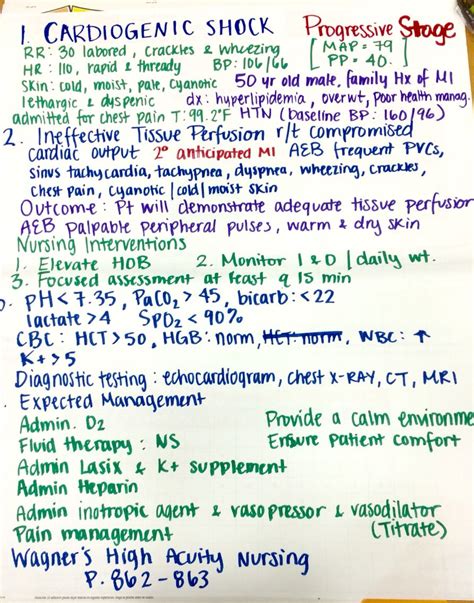 1. CARDIOGENIC SHOCK Progressive Stage
RR: 30 labored, crackles & wheezing [MAP = 79
HR: 110, rapid & thready BP: 106/66 PP = 40.]
Skin: cold, moist, pale, cyanotic 50 yr old male, family Hx of MI
lethargic & dyspenic dx: hyperlipidemia, overwt, Poor health manag.
admitted for chest pain T: 99.2°F HTN (baseline BP: 160/96)
2. Ineffective Tissue Perfusion r/t compromised
cardiac output 2° anticipated MI AEB frequent PVCs,
sinus tachycardia, tachypnea, dyspnea, wheezing, crackles,
chest pain, cyanotic/cold/moist skin
Outcome: Pt will demonstrate adequate tissue perfusion
AEB palpable peripheral pulses, warm & dry skin
Nursing Interventions
1. Elevate HOB 2. Monitor I & O / daily wt.
3. Focused assessment at least q 15 min
pH < 7.35, PaCO2 > 45, bicarb: < 22
lactate > 4 SpO2 < 90%
CBC: HCT > 50, HGB: norm, HCT: norm, WBC: ↑
K+ > 5
Diagnostic testing: echocardiogram, chest X-RAY, CT, MRI
. Expected Management
Admin. O2 Provide a calm environme
Fluid therapy: NS Ensure patient comfort
Admin Lasix & K+ supplement
Admin Heparin
Admin inotropic agent & vasopressor & vasodilator
Pain management (Titrate)
Wagner's High Acuity Nursing
P. 862-863